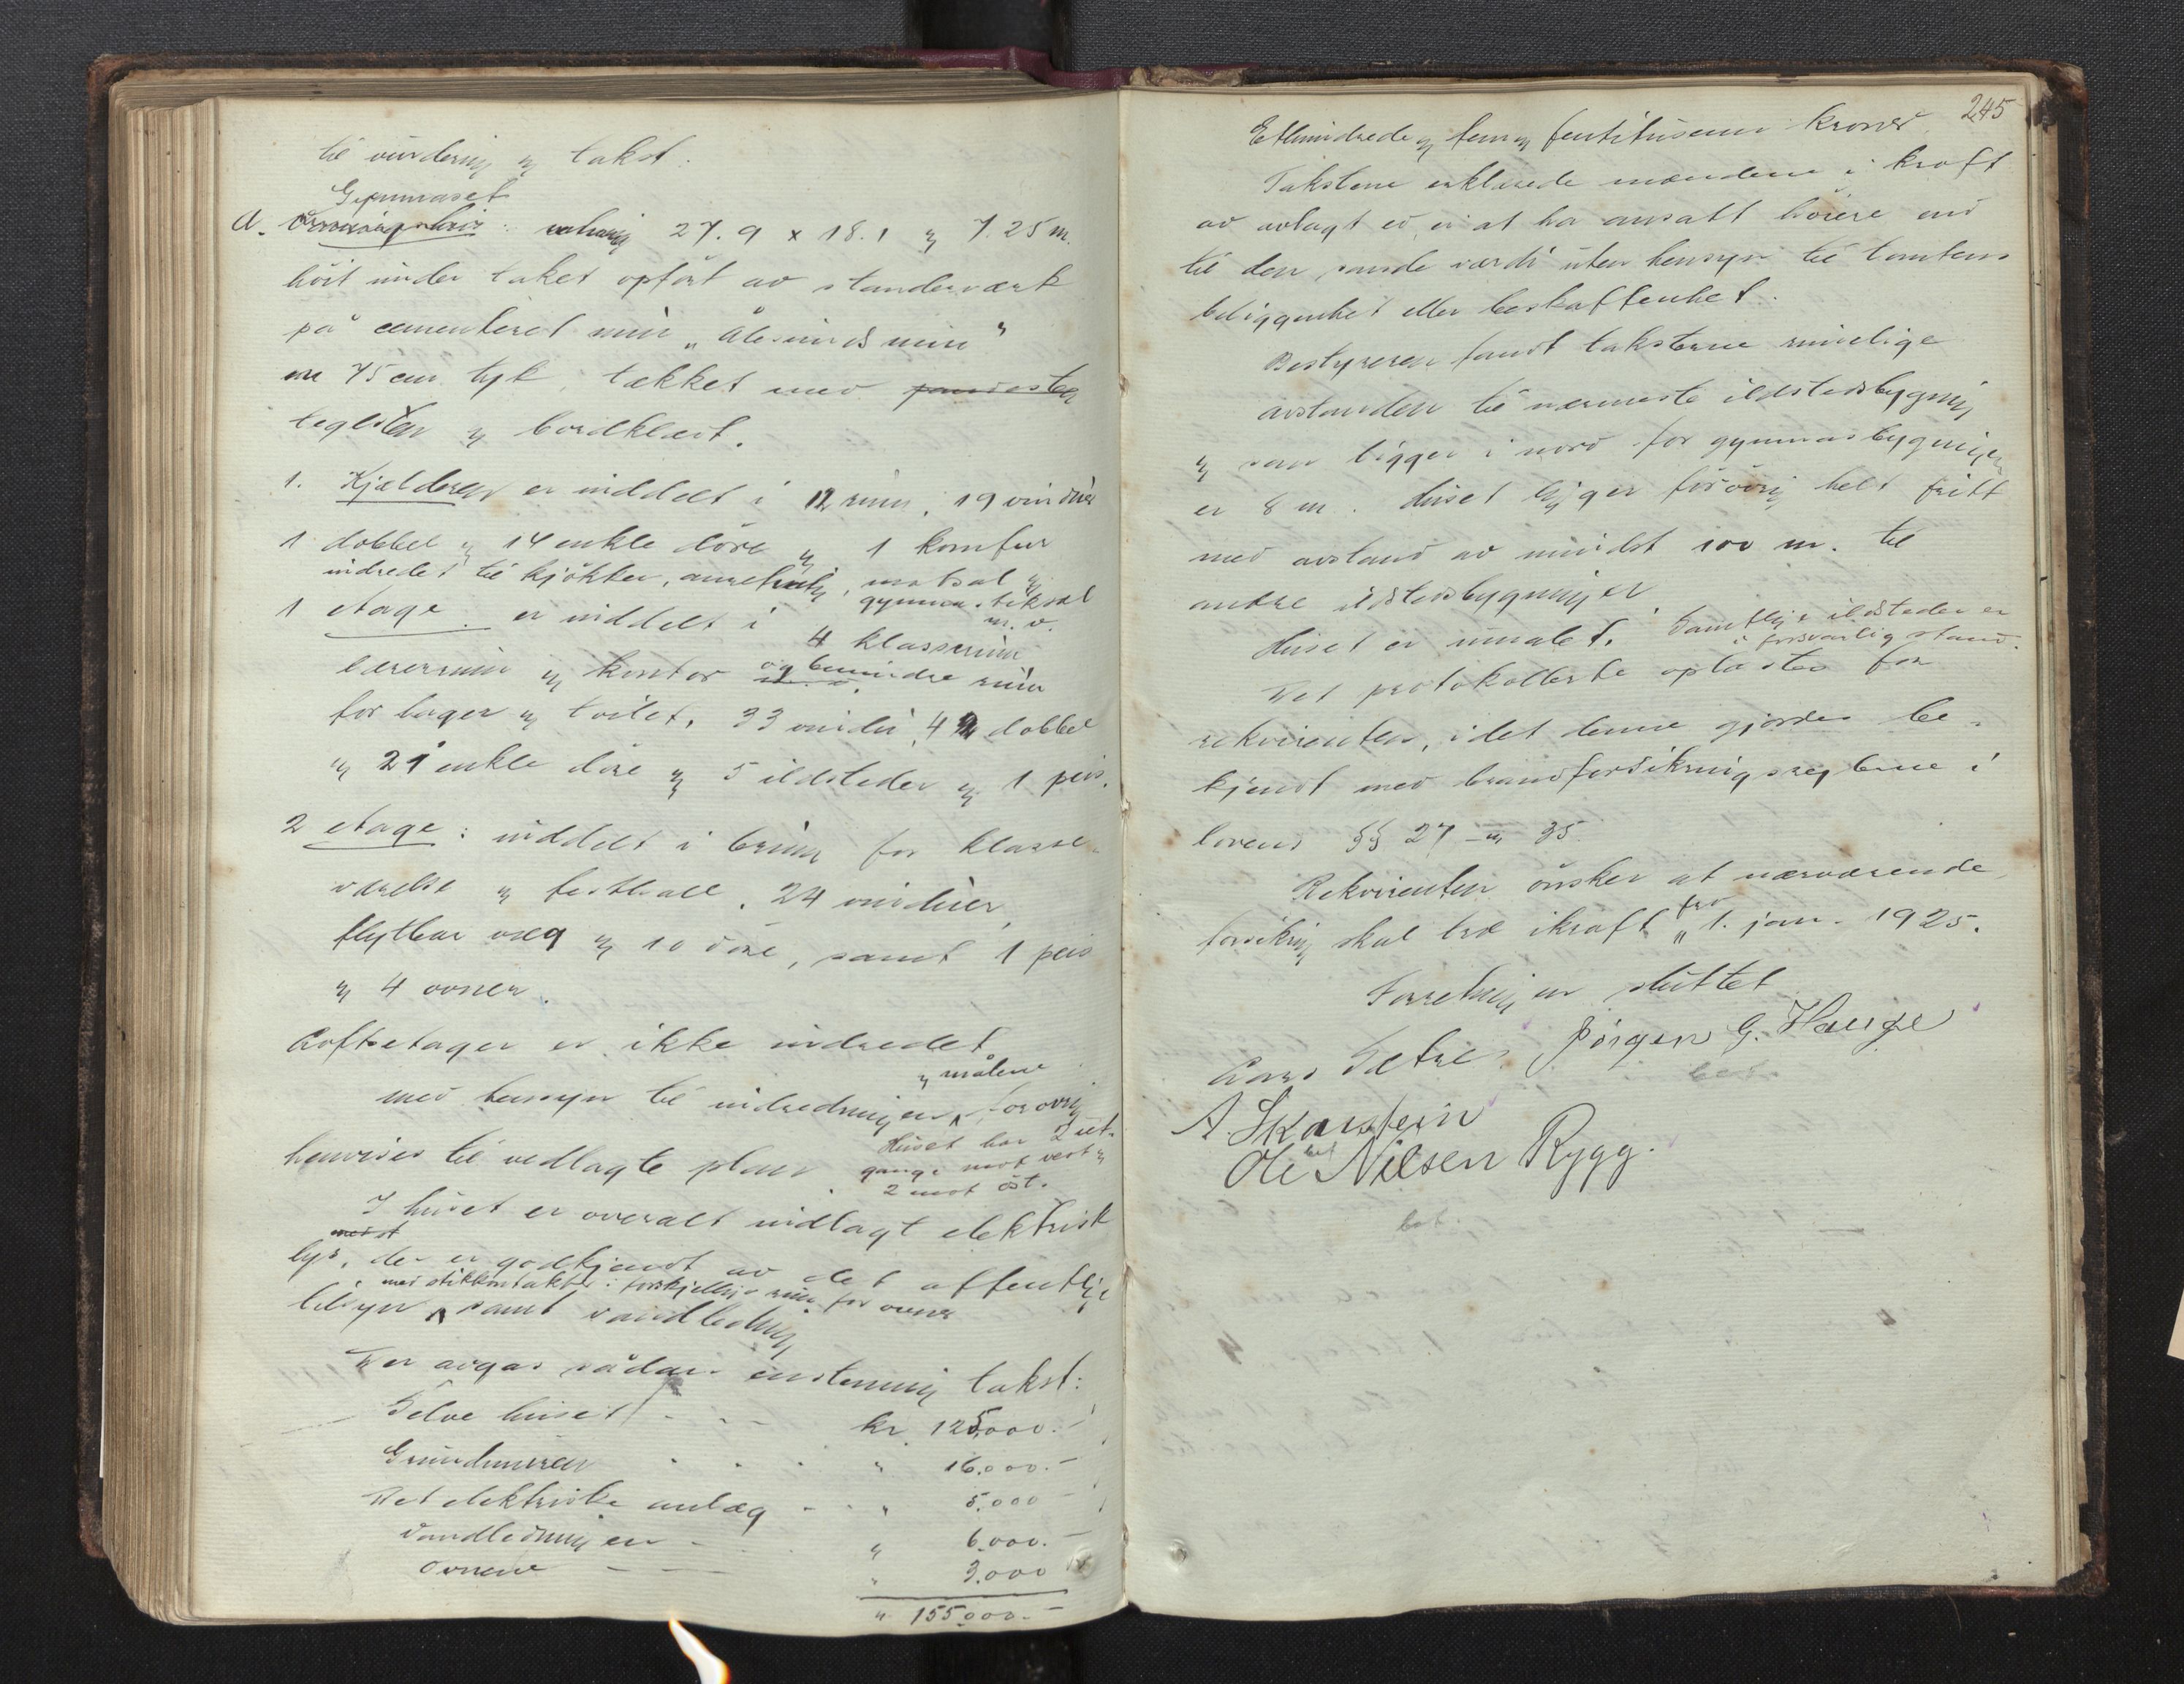 til vurdering og takst:
Gymnaset
a. Vaaningshus: utvendig 27.9 x 18.1 og 7.25 m.
höit under taket opfört av standerværk
på cementeret mur "Ålesundsmur"
75 cm. tyk, tækket med
teglsten og bordklædt.
1. Kjælderen er inddelt i 12 rum, 19 vinduer
1 dobbel og 14 enkle döre og 1 komfur
indredet til kjökken, anretning, matsal og
gymnastiksal
m.v.
1 etage er inddelt i 4 klasserum
lærerrum og kontor og mindre rum
for lager og toilet. 33 vinduer, 4 dobbel
og 21 enkle döre og 5 ildsteder og 1 peis.
2 etage: inddelt i 6 rum for klasse-
værelse og festhall. 24 vinduer,
flytbar væg og 10 döre, samt 1 peis
og 4 ovner.
Loftsetagen er ikke indredet
og målene
med hensyn til indredningen forövrig
henvises til vedlagte plan. Huset har 2 ut-
gange mot vest og
2 mot öst.
I huset er overalt indlagt elektrisk
lys, der er godkjendt av det offentlige
med stikkontakter i forskjellige rum for ovner
tilsyn samt vandledning
Der avgas sådan enstemmig takst:
Selve huset - - - kr. 125,000.-
Grundmuren . . . " 16.000.-
Det elektriske anlæg - - " 5.000 -
Vandledningen - . " 6.000.-
Ovnene - - - " 3.000
" 155000.-
245
Etthundrede og fem og femtitusen kroner.
Takstene erklærede mændene i kraft
av avlagt ed, ei at ha ansatt höiere end
til den sande værdi uten hensyn til tomtens
beliggenhet eller beskaffenhet.
Bestyreren fandt taksterne rimelige
avstanden til nærmeste ildstedsbygning
og som ligger i nord for gymnasbygningen
er 8 m. Huset ligger forövrig helt fritt
med avstand av mindst 100 m. til
andre ildstedsbygninger
Huset er umalet. Samtlige ildsteder er
i forsvarlig stand.
Det protokollerte oplæstes for
rekvirenten, idet denne gjordes be-
kjendt med brandforsikringsreglene i
lovens §§ 27 og 35.
Rekvirenten önsker at nærværende
fra
forsikring skal træ ikraft " 1. jan. 1925.
Forretningen sluttet
Lars Sætre Jörgen G. Hauge
A. Skarstein
Ole Nilsen Rygg.